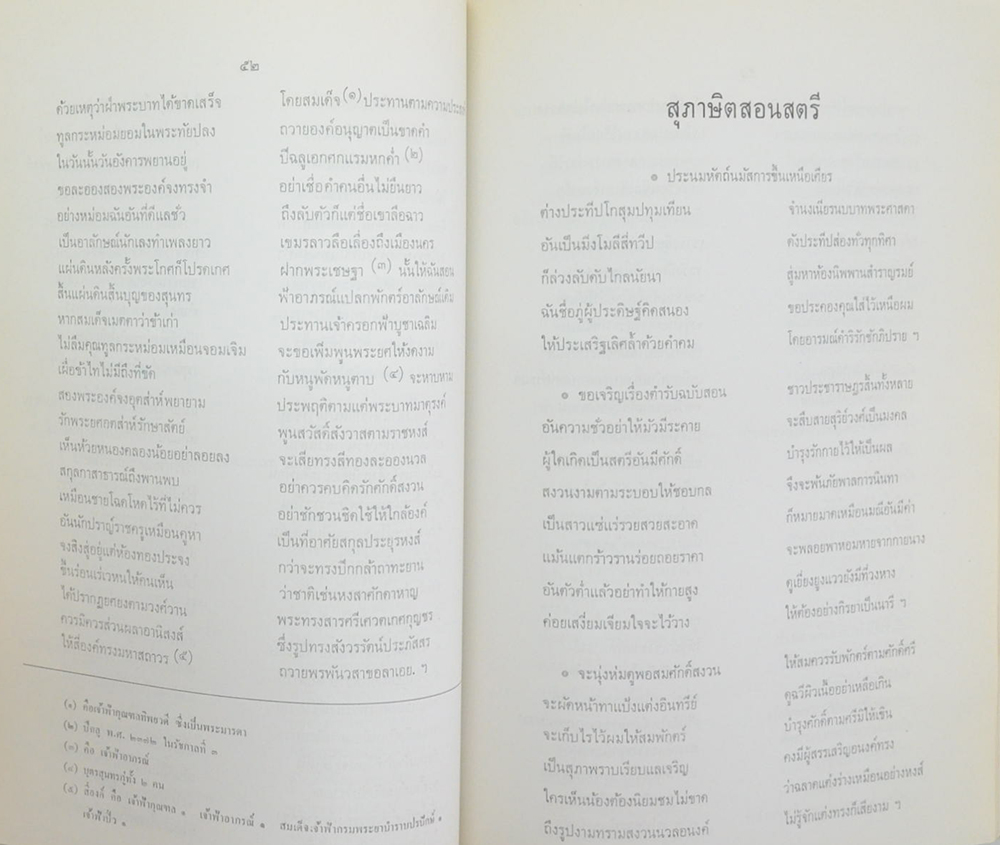 ๕๒
ด้วยเหตุว่าฝ่าพระบาทได้ขาดเสร็จ โดยสมเด็จ (๑) ประทานตามความ
ทูลกระหม่อมยอมในพระทัยปลง ถวายองค์อนุญาตเป็นขาดคำ
ในวันนั้นวันอังคารพยานอยู่ ปีฉลูเอกศกแรมหกค่ำ (๒)
ขอละอองสองพระองค์จงทรงจำ อย่าเชื่อคำคนอื่นไม่ยืนยาว
อย่างหม่อมฉันอันที่ดีแลชั่ว ถึงลับตัวก็แต่ชื่อเขาลือฉาว
เป็นอาลักษณ์นักเลงทำเพลงยาว เขมรลาวลือเลื่องถึงเมืองนคร
แผ่นดินหลังครั้งพระโกศก็โปรดเกศ ฝากพระเชษฐา (๓) นั้นให้ฉันสอน
สิ้นแผ่นดินสิ้นบุญของสุนทร ฟ้าอาภรณ์แปลกพักตร์อาลักษณ์เดิม
หากสมเด็จเมตตาว่าข้าเก่า ประทานเจ้าครอกฟ้าบูชาเฉลิม
ไม่ลืมคุณทูลกระหม่อมเหมือนจอมเจิม จะขอเพิ่มพูนพระยศให้งดงาม
เผื่อข้าไทไม่มีถึงที่ขัด กับหนูพัดหนูตาบ (๔) จะหาบหาม
สองพระองค์จงอุตส่าห์พยายาม ประพฤติตามแต่พระบาทมาตุรงค์
รักพระยศอตส่าห์รักษาสัตย์ พูนสวัสดิ์สังวาสตามราชหงส์
เห็นห้วยหนองคลองน้อยอย่าลอยลง จะเสียทรงสีทองละอองนวล
สกุลกาสาธารณ์ถึงพานพบ อย่าควรคบคิดรักศักดิ์สงวน
เหมือนชายโฉดโหดไร้ที่ไม่ควร อย่าชักชวนชิดใช้ให้ใกล้องค์
อันนักปราญ์ราชครูเหมือนคูหา เป็นที่อาศัยสกุลประยุรหงส์
จงสิงสู่อยู่แต่ห้องทองประจง กว่าจะทรงปีกกล้าถาทะยาน
ขึ้นร่อนเร่เวหนให้คนเห็น ว่าชาติเช่นหงสาศักดาหาญ
ได้ปรากฏยศยงตามวงศ์วาน พระทรงสารศรีเศวตเกศกุญชร
ควรมิควรส่วนผลาอานิสงส์ ซึ่งรูปทรงสังวรรัตน์ประภัสสร
ให้สี่องค์ทรงมหาสถาวร (๕) ถวายพรพันวสาขอลาเอย. ฯ
(๑) คือเจ้าฟ้ากุณฑลทิพยวดี ซึ่งเป็นพระมารดา
(๒) ปีฉลู พ.ศ. ๒๓๗๒ ในรัชกาลที่ ๓
(๓) คือ เจ้าฟ้าอาภรณ์
(๔) บุตรสุนทรภู่ทั้ง ๒ คน
(๕) สี่องค์ คือ เจ้าฟ้ากุณฑล ๑ เจ้าฟ้าอาภรณ์ ๑ สมเด็จเจ้าฟ้ากรมพระยาบำราบปรปักษ์ ๑
เจ้าฟ้าปิ๋ว ๑
สุภาษิตสอนสตรี
๏ ประนมหัตถ์นมัสการขึ้นเหนือเศียร
ต่างประทีปโกสุมปทุมเทียน จำนงเนียรนบบาทพระศาสดา
อันเป็นมิ่งโมลีสี่ทวีป ดังประทีปส่องทั่วทุกทิศา
ก็ล่วงลับดับไกลนัยนา สู่มหาห้องนิพพานสำราญรมย์
ฉันชื่อภู่ผู้ประดิษฐ์คิดสนอง ขอประคองคุณใส่ไว้เหนือผม
ให้ประเสริฐเลิศล้ำด้วยคำคม โดยอารมณ์ดำริรักชักภิปราย ฯ
๏ ขอเจริญเรื่องตำรับฉบับสอน ชาวประชาราษฎรสิ้นทั้งหลาย
อันความชั่วอย่าให้มัวมีระคาย จะสืบสายสุริย์วงศ์เป็นมงคล
ผู้ใดเกิดเป็นสตรีอันมีศักดิ์ บำรุงรักกายไว้ให้เป็นผล
สงวนงามตามระบอบให้ชอบกล จึงจะพ้นภัยพาลการนินทา
เป็นสาวแซ่แร่รวยสวยสะอาด ก็หมายมาดเหมือนมณีอันมีค่า
แม้นแตกร้าวรานร่อยถอยราคา จะพลอยพาหอมหายจากกายนาง
อันตัวต่ำแล้วอย่าทำให้กายสูง ดูเยี่ยงยูงแววยังมีที่วงหาง
ค่อยเสงี่ยมเจียมใจจะไว้วาง ให้ต้องอย่างกิริยาเป็นนารี ฯ
๏ จะนุ่งห่มดูพอสมศักดิ์สงวน ให้สมควรรับพักตร์ตามศักดิ์ศรี
จะผัดหน้าทาแป้งแต่งอินทรีย์ ดูฉวีผิวเนื้ออย่าเหลือเกิน
จะเก็บไรไว้ผมให้สมพักตร์ บำรุงศักดิ์ตามศรีมิให้เขิน
เป็นสุภาพราบเรียบแลเจริญ คงมีผู้สรรเสริญอนงค์ทรง
ใครเห็นน้องต้องนิยมชมไม่ขาด ว่าฉลาดแต่งร่างเหมือนอย่างหงส์
ถึงรูปงามทรามสงวนนวลอนงค์ ไม่รู้จักแต่งทรงก็เสียงาม ฯ